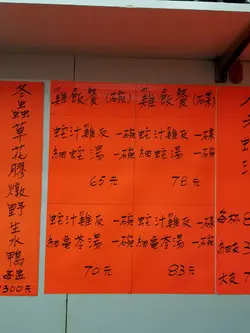 冬蟲草花膠燉野生水鴨
每盅
300元
雞飯餐(碗)
蛇汁雞反 一碗
細蛇湯 一碗
65元
蛇汁雞反 一碗
細龜苓湯 一碗
70元
雞飯餐(碟)
蛇汁雞反 一碟
細蛇湯 一碗
78元
蛇汁雞反 一碟
細龜苓湯 一碗
83元
每杯
細反
大反